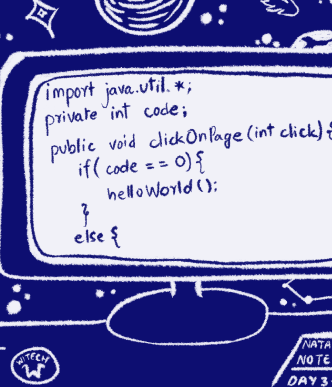 import java.util.*;
private int code;
public void clickOnPage(int click){
if( code == 0){
helloWorld();
}
else {
WITECH
W
NATA
NOTE
DAY 3